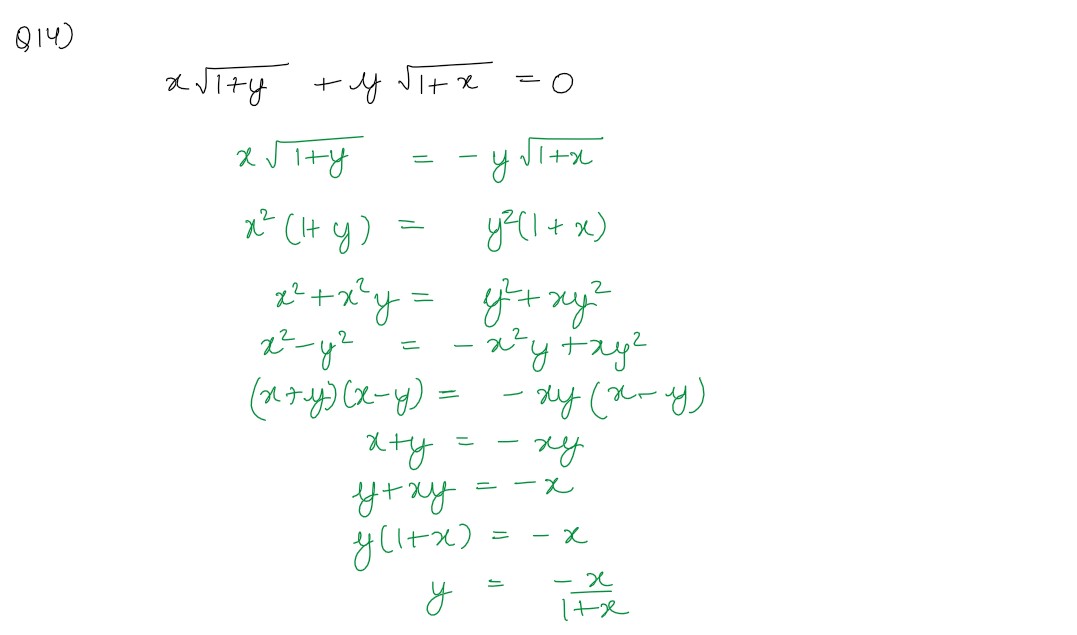 Q14)
x√(1+y) + y√(1+x) = 0
x√(1+y) = -y√(1+x)
x²(1+y) = y²(1+x)
x²+x²y = y²+xy²
x²-y² = -x²y+xy²
(x+y)(x-y) = -xy(x-y)
x+y = -xy
y+xy = -x
y(1+x) = -x
y = -x/(1+x)